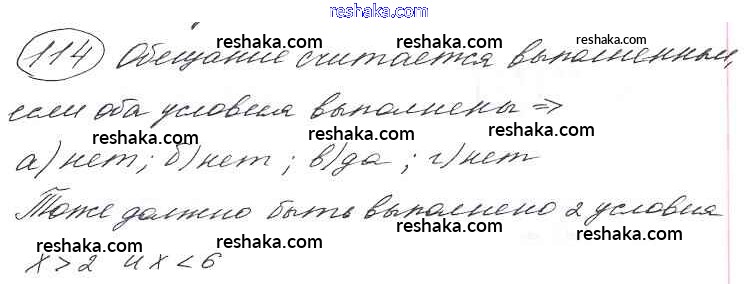 reshaka.com
114 Обещание считается выполненным,
reshaka.com reshaka.com reshaka.com
если оба условия выполнены =>
reshaka.com reshaka.com reshaka.com
а) нет; б) нет; в) да; г) нет
reshaka.com reshaka.com reshaka.com
Тоже должно быть выполнено 2 условия
reshaka.com reshaka.com reshaka.com
x > 2 и x < 6
reshaka.com